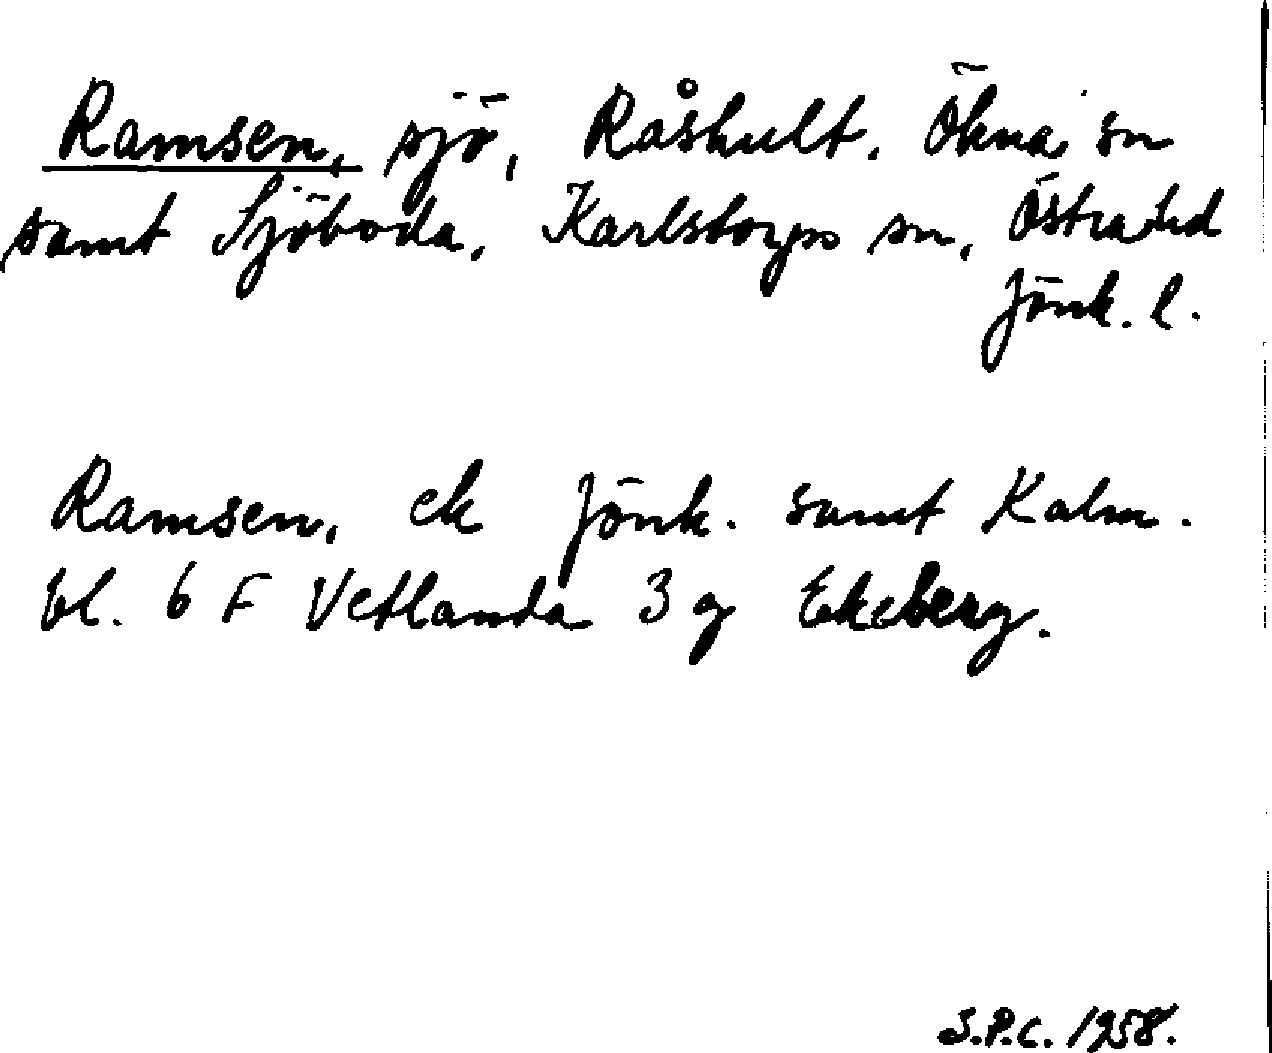 Ramsen, sjö, Råshult. Ökna sn
samt Sjöboda, Karlstorps sn, Östra hd
Jönk. l.
Ramsen, ek Jönk. samt Kalm.
bl. 6 F Vetlanda 3 g Ekeberg.
S.P.C. 1958.